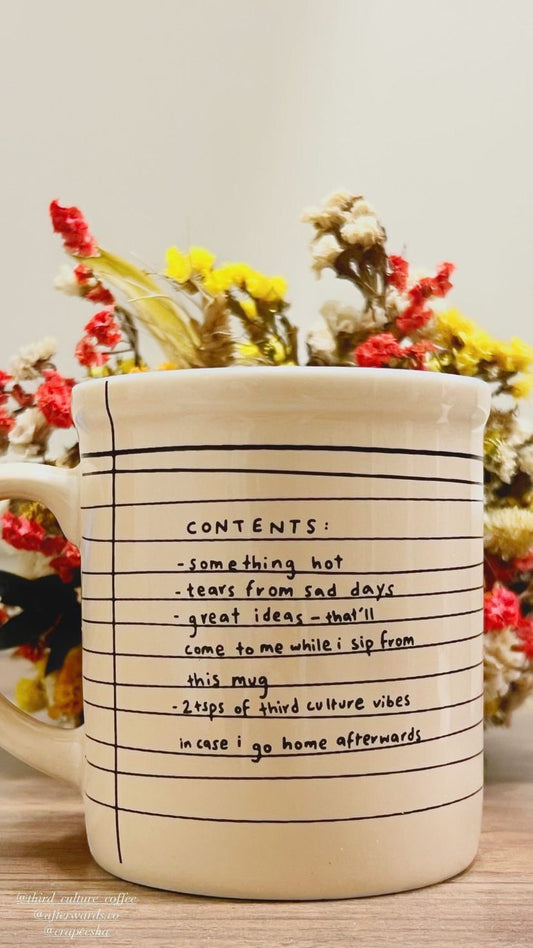 CONTENTS:
- something hot
- tears from sad days
- great ideas - that'll
come to me while i sip from
this mug
- 2 tsps of third culture vibes
in case i go home afterwards
@third_culture_coffee
@afterwards.co
@crapeesha